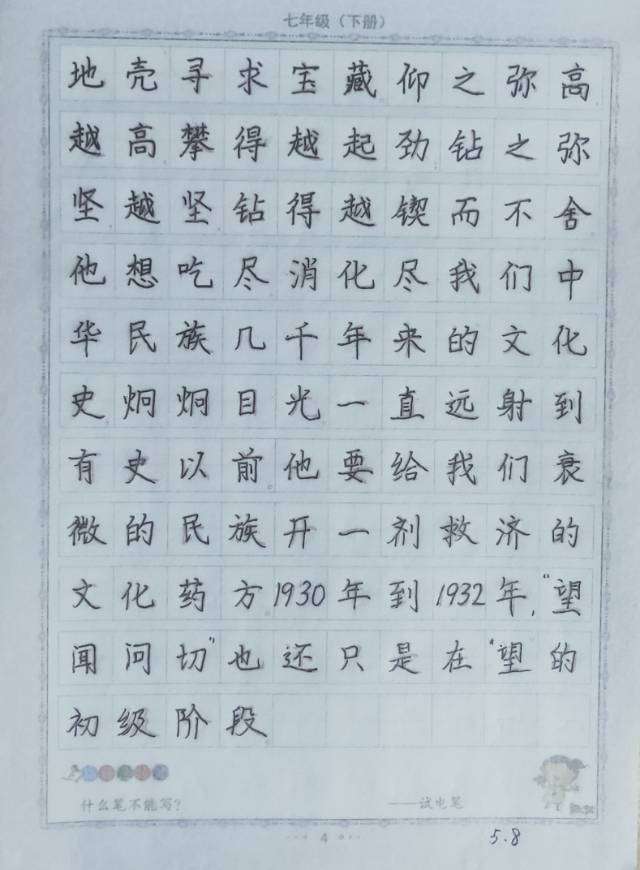 七年级（下册）
地壳寻求宝藏仰之弥高
越高攀得越起劲钻之弥
坚越坚钻得越锲而不舍
他想吃尽消化尽我们中
华民族几千年来的文化
史炯炯目光一直远射到
有史以前他要给我们衰
微的民族开一剂救济的
文化药方1930年到1932年,“望
闻问切”也还只是在“望”的
初级阶段
什么笔不能写?
——试电笔
4
5.8